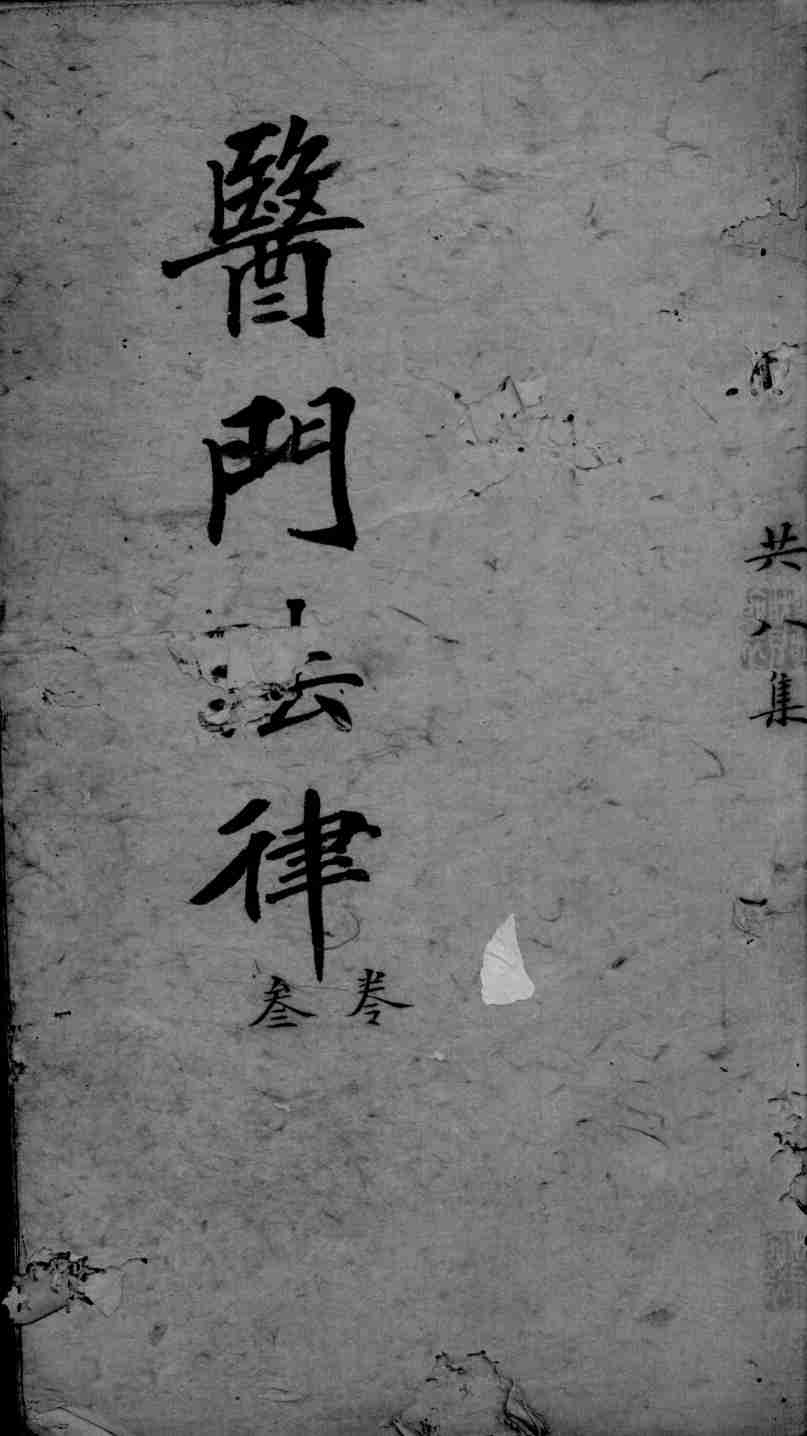 共八集
醫門法律
卷叁